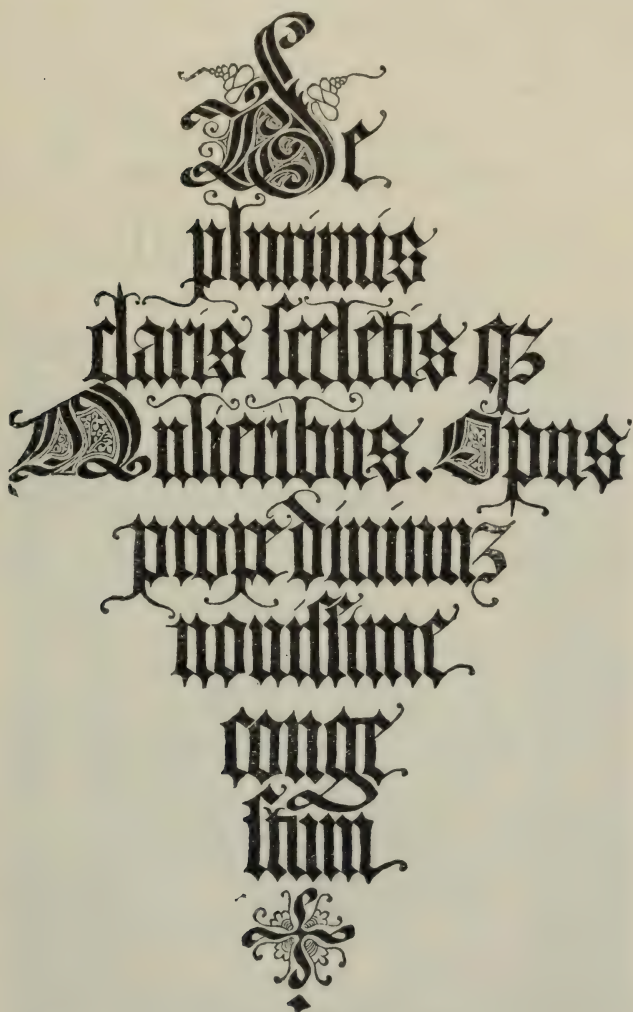 De
plurimis
claris ſceletis qʒ
Mulieribus. Opus
prope diuinuʒ
nouiſſime
conge
ſtum